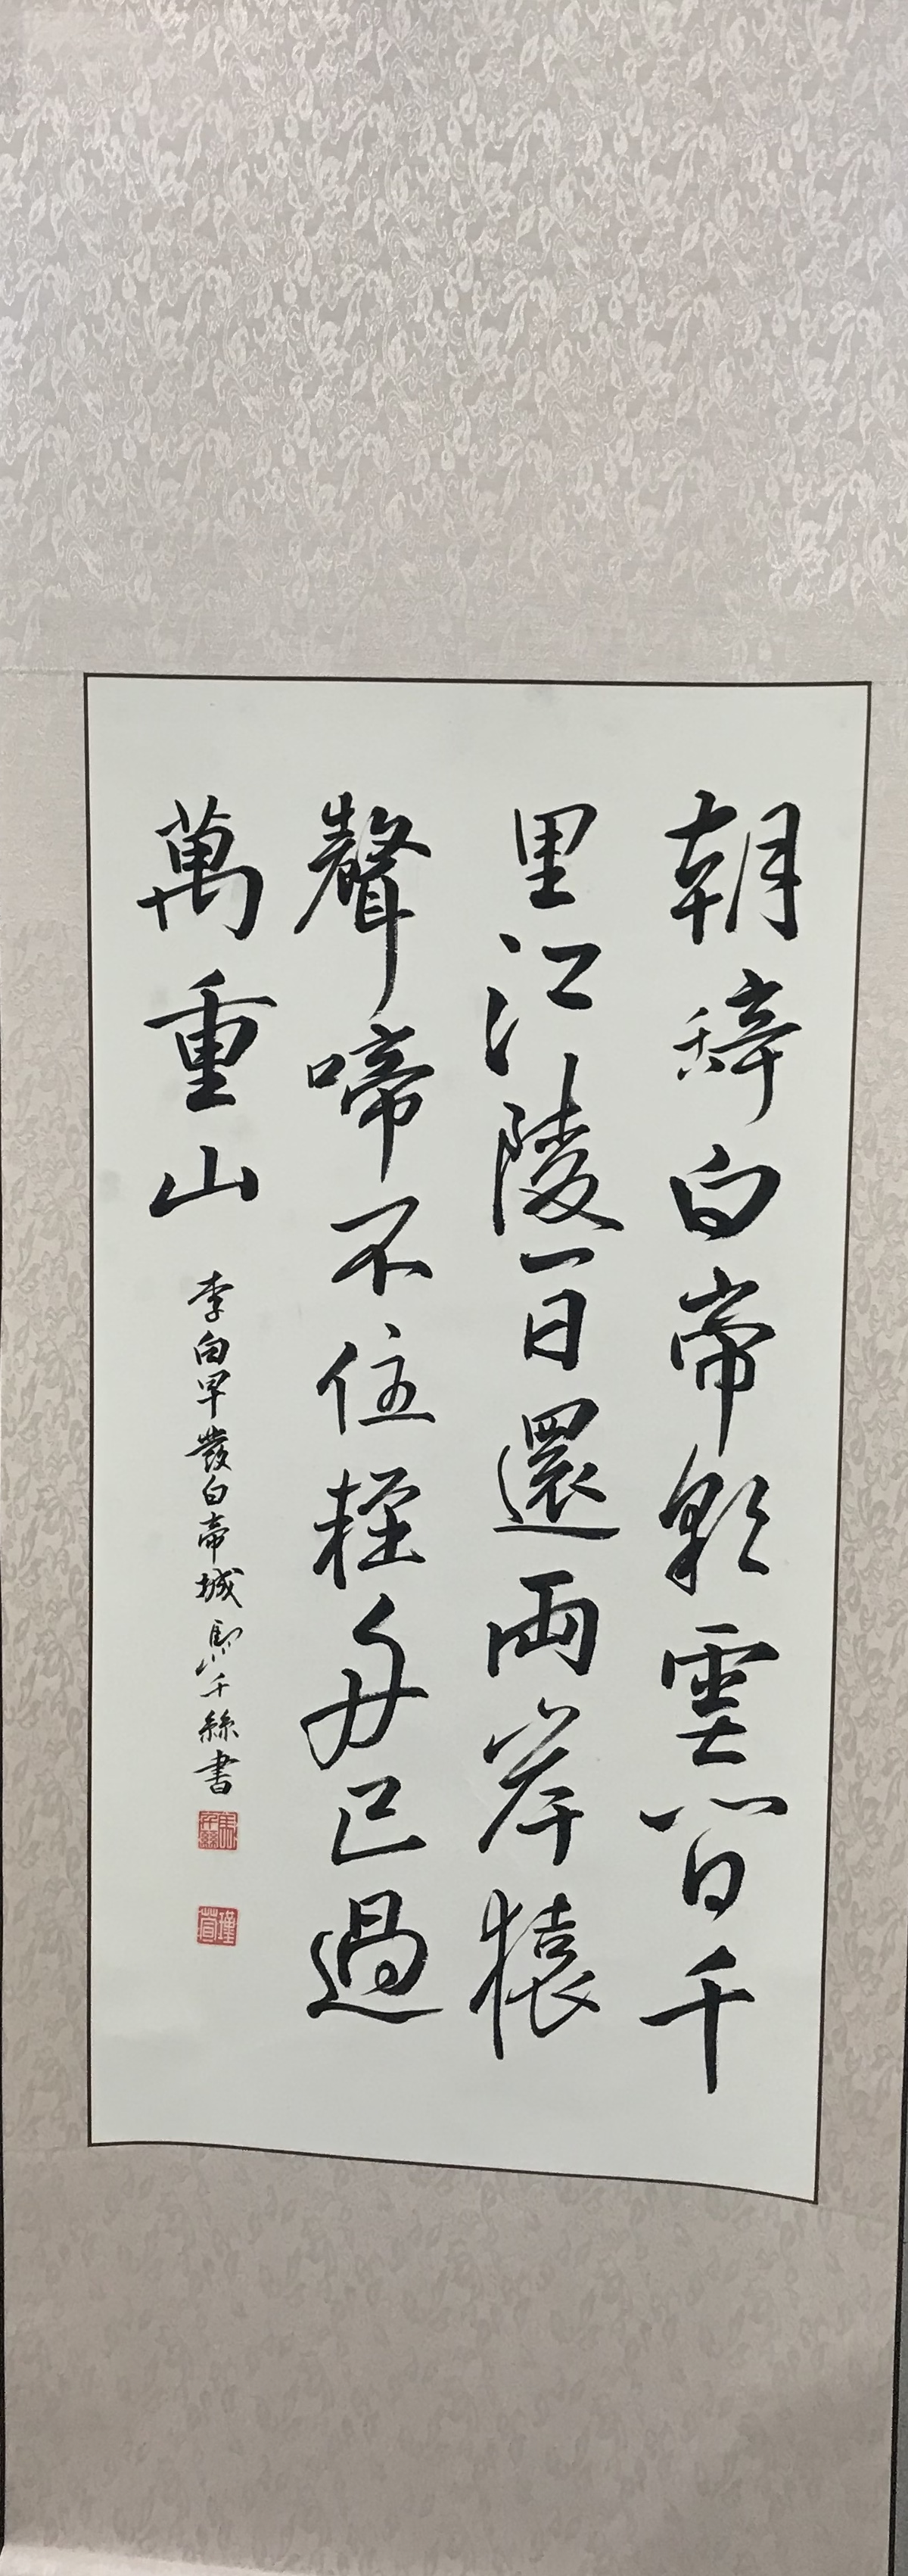 朝辭白帝彩雲間千
里江陵一日還兩岸猿
聲啼不住輕舟已過
萬重山
李白早發白帝城馬千絲書
馬千絲
瑾萱